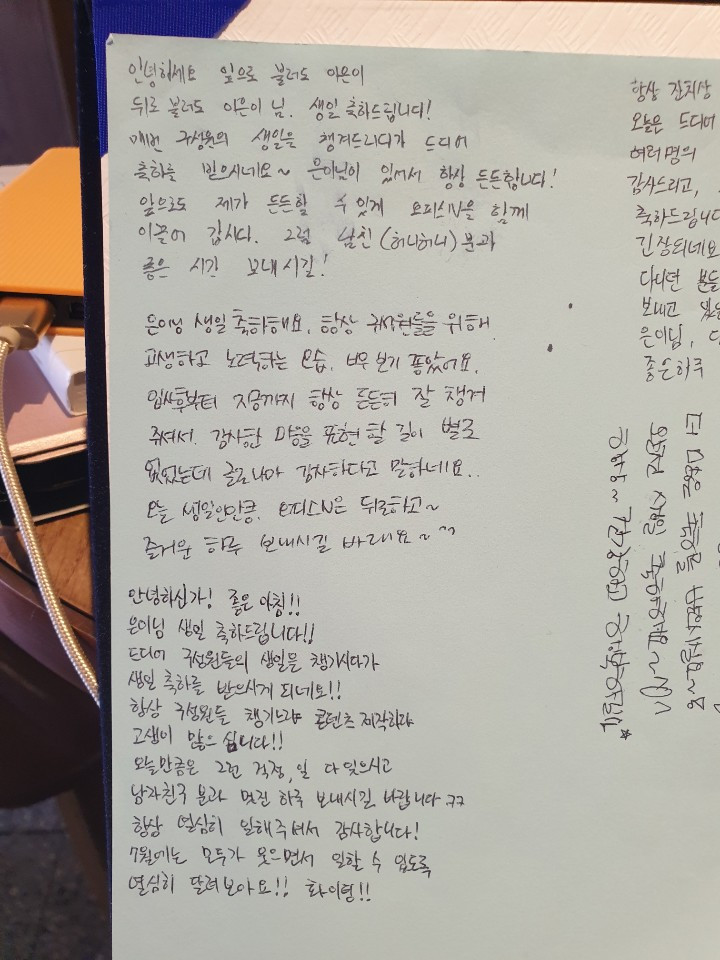 안녕하세요 앞으로 불러도 이은이
뒤로 불러도 이은이 님. 생일 축하드립니다!
매번 구성원의 생일을 챙겨드리다가 드디어
축하를 받으시네요~ 은이님이 있어서 항상 든든합니다!
앞으로도 제가 든든할 수 있게 오피스N을 함께
이끌어 갑시다. 그럼 남친 (허니허니) 분과
좋은 시간 보내시길!
은이님 생일 축하해요. 항상 구성원들을 위해.
고생하고 노력하는 모습. 너무 보기 좋았어요.
입사후부터 지금까지 항상 든든히 잘 챙겨
주셔서. 감사한 마음을 표현 할 길이 별로
없었는데 글로나마 감사하다고 말하네요..
오늘 생일인만큼. 오피스N은 뒤로하고~
즐거운 하루 보내시길 바래요~^^
안녕하신가! 좋은 아침!!
은이님 생일 축하드립니다!!
드디어 구성원들의 생일을 챙기시다가
생일 축하를 받으시게 되네요!!
항상 구성원들 챙기느랴 콘텐츠 제작하랴
고생이 많으십니다!!
오늘만큼은 그런 걱정, 일 다 잊으시고
남자친구 분과 멋진 하루 보내시길 바랍니다 ㅋㅋ
항상 열심히 일해주셔서 감사합니다!
7월에는 모두가 웃으면서 일할 수 있도록
열심히 달려보아요!! 화이팅!!
항상 잔치상
오늘은 드디어
여러명의
감사드리고,
축하드립니다
긴장되네요
다니던 분들
보내고
은이님,
좋은하루